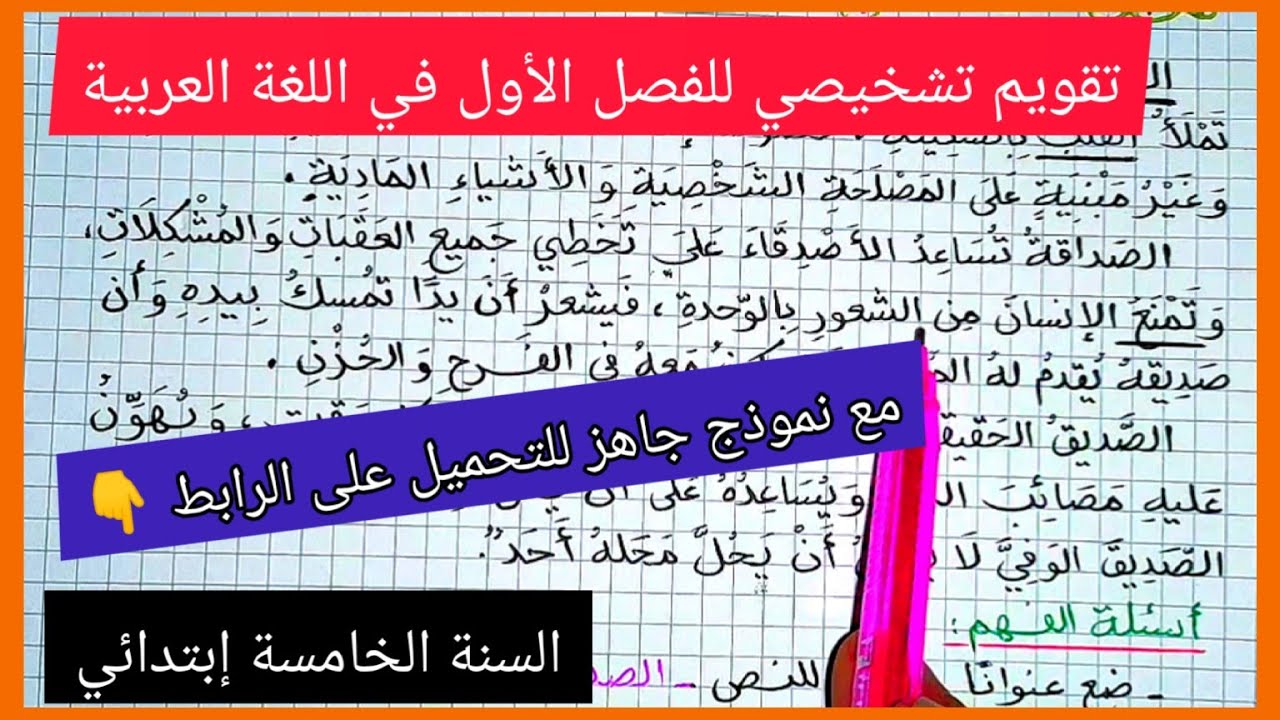 تقويم تشخيصي للفصل الأول في اللغة العربية
تَمْلَأُ القلب
وَغَيْرُ مَبْنِيَةٍ عَلَى المَصْلَحَةِ الشَخْصِيَةِ وَالأَشْيَاءِ المَادِيَةِ.
الصَداقةُ تُسَاعِدُ الأَصْدِقَاءَ عَلَى تَخَطِي جَمِيعِ العَقَبَاتِ وَالمُشْكِلَاتِ،
وَتَمْنَعُ الإنسانَ مِن الشعورِ بِالوّحدةِ، فَيشعرُ أَنَ يدًا تمُسكُ بِيدِهِ وَأن
صَدِيقهُ يُقدمُ لهُ مَعهُ في الفَرحِ وَالحُزْنِ.
الصَّديقُ وَيُهَوِّنُ
عَليهِ مَصَائِبَ وَيُسَاعِدُهُ عَلَى أن
الصَّدِيقَ الوَفِيَّ لَا أَنْ يَحُلَّ مَحَلهُ أَحَدٌ".
مع نموذج جاهز للتحميل على الرابط 👇
أسئلة الفهم:
- ضع عنوانًا للنص -
السنة الخامسة إبتدائي